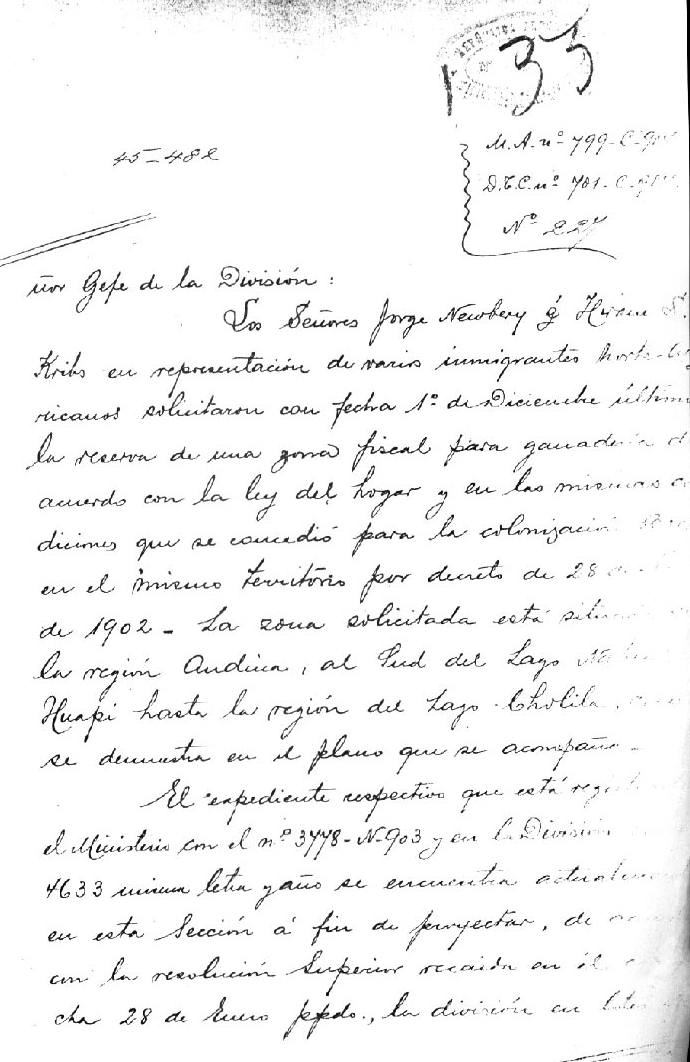 133
45-482
M.A. nº 799-C-90
D.T.C. nº 701-C-
Nº 227
ñor Gefe de la División:
Los Señores Jorge Newbery y Hiram
Kribs en representación de varios inmigrantes norte
ricanos solicitaron con fecha 1º de Diciembre últim
la reserva de una zona fiscal para ganadería d
acuerdo con la ley del hogar y en las mismas co
diciones que se concedió para la colonización
en el mismo territorio por decreto de 28 de
de 1902 - La zona solicitada está situa
la región Andina, al Sud del Lago Na
Huapi hasta la región del Lago Cholila,
se demuestra en el plano que se acompaña -
El expediente respectivo que está regi
el Ministerio con el nº 3778-N-903 y en la División
4633 misma letra y año se encuentra actualmen
en esta Sección á fin de proyectar, de
con la resolución Superior recaida en él
cha 28 de Enero ppdo., la división en lotes